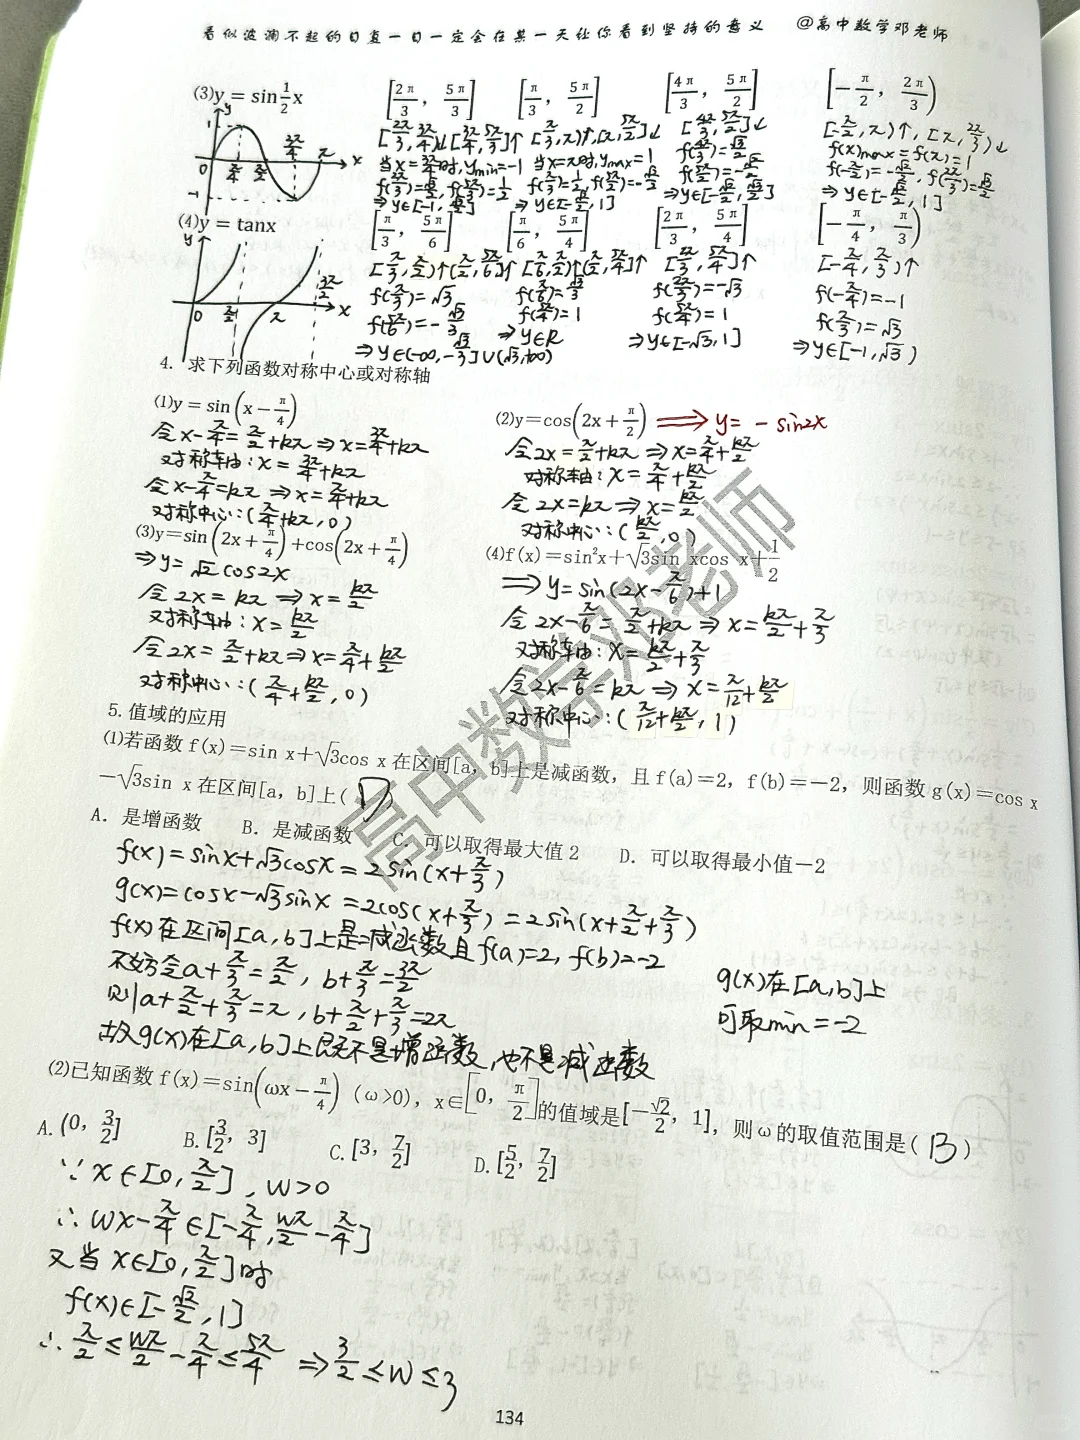 看似波澜不起的日复一日一定会在某一天让你看到坚持的意义 @高中数学邓老师
(3)y=sin½x [2π/3, 5π/3] [π/3, 5π/2] [4π/3, 5π/2] [-π/2, 2π/3)
当x=π时, ymax=1
f(x)max=f(π)=1
⇒y∈[-√2/2, 1]
(4)y=tanx [π/3, 5π/6] [π/6, 5π/4] [2π/3, 5π/4] [-π/4, π/3)
[π/3, π/2)↑(π/2, 5π/6]↑ [π/6, π/2)↑(π/2, 5π/4]↑ [2π/3, 5π/4]↑ [-π/4, π/3)↑
f(π/3)=√3 f(π/6)=√3/3 f(2π/3)=-√3 f(-π/4)=-1
f(5π/6)=-√3/3 f(5π/4)=1 f(5π/4)=1 f(π/3)=√3
⇒y∈(-∞, -√3/3]∪[√3, +∞) ⇒y∈R ⇒y∈[-√3, 1] ⇒y∈[-1, √3)
4. 求下列函数对称中心或对称轴
(1)y=sin(x-π/4)
令x-π/4=π/2+kπ⇒x=3π/4+kπ
对称轴:x=3π/4+kπ
令x-π/4=kπ⇒x=π/4+kπ
对称中心:(π/4+kπ, 0)
(2)y=cos(2x+π/2) ⟹ y=-sin2x
令2x=π/2+kπ⇒x=π/4+kπ/2
对称轴:x=π/4+kπ/2
令2x=kπ⇒x=kπ/2
对称中心:(kπ/2, 0)
(3)y=sin(2x+π/4)+cos(2x+π/4)
⇒y=√2cos2x
令2x=kπ⇒x=kπ/2
对称轴:x=kπ/2
令2x=π/2+kπ⇒x=π/4+kπ/2
对称中心:(π/4+kπ/2, 0)
(4)f(x)=sin²x+√3sin xcos x+1/2
⟹y=sin(2x-π/6)+1
令2x-π/6=π/2+kπ⇒x=kπ/2+π/3
对称轴:x=kπ/2+π/3
令2x-π/6=kπ⇒x=π/12+kπ/2
对称中心:(π/12+kπ/2, 1)
5.值域的应用
(1)若函数f(x)=sin x+√3cos x在区间[a, b]上是减函数, 且f(a)=2, f(b)=-2, 则函数g(x)=cos x
-√3sin x在区间[a, b]上( D )
A. 是增函数 B. 是减函数 C. 可以取得最大值2 D. 可以取得最小值-2
f(x)=sinx+√3cosx=2sin(x+π/3)
g(x)=cosx-√3sinx=2cos(x+π/3)=2sin(x+π/2+π/3)
f(x)在区间[a,b]上是减函数且f(a)=2, f(b)=-2
不妨令a+π/3=π/2, b+π/3=3π/2
则a+π/2+π/3=π, b+π/2+π/3=2π
故g(x)在[a,b]上既不是增函数,也不是减函数
g(x)在[a,b]上
可取min=-2
(2)已知函数f(x)=sin(ωx-π/4)(ω>0), x∈[0, π/2]的值域是[-√2/2, 1], 则ω的取值范围是( B )
A.(0, 3/2] B.[3/2, 3] C.[3, 7/2] D.[5/2, 7/2]
∵x∈[0, π/2], w>0
∴wx-π/4∈[-π/4, wπ/2-π/4]
又当x∈[0, π/2]时
f(x)∈[-√2/2, 1]
∴π/2≤wπ/2-π/4≤5π/4 ⇒3/2≤w≤3
高中数学邓老师
134